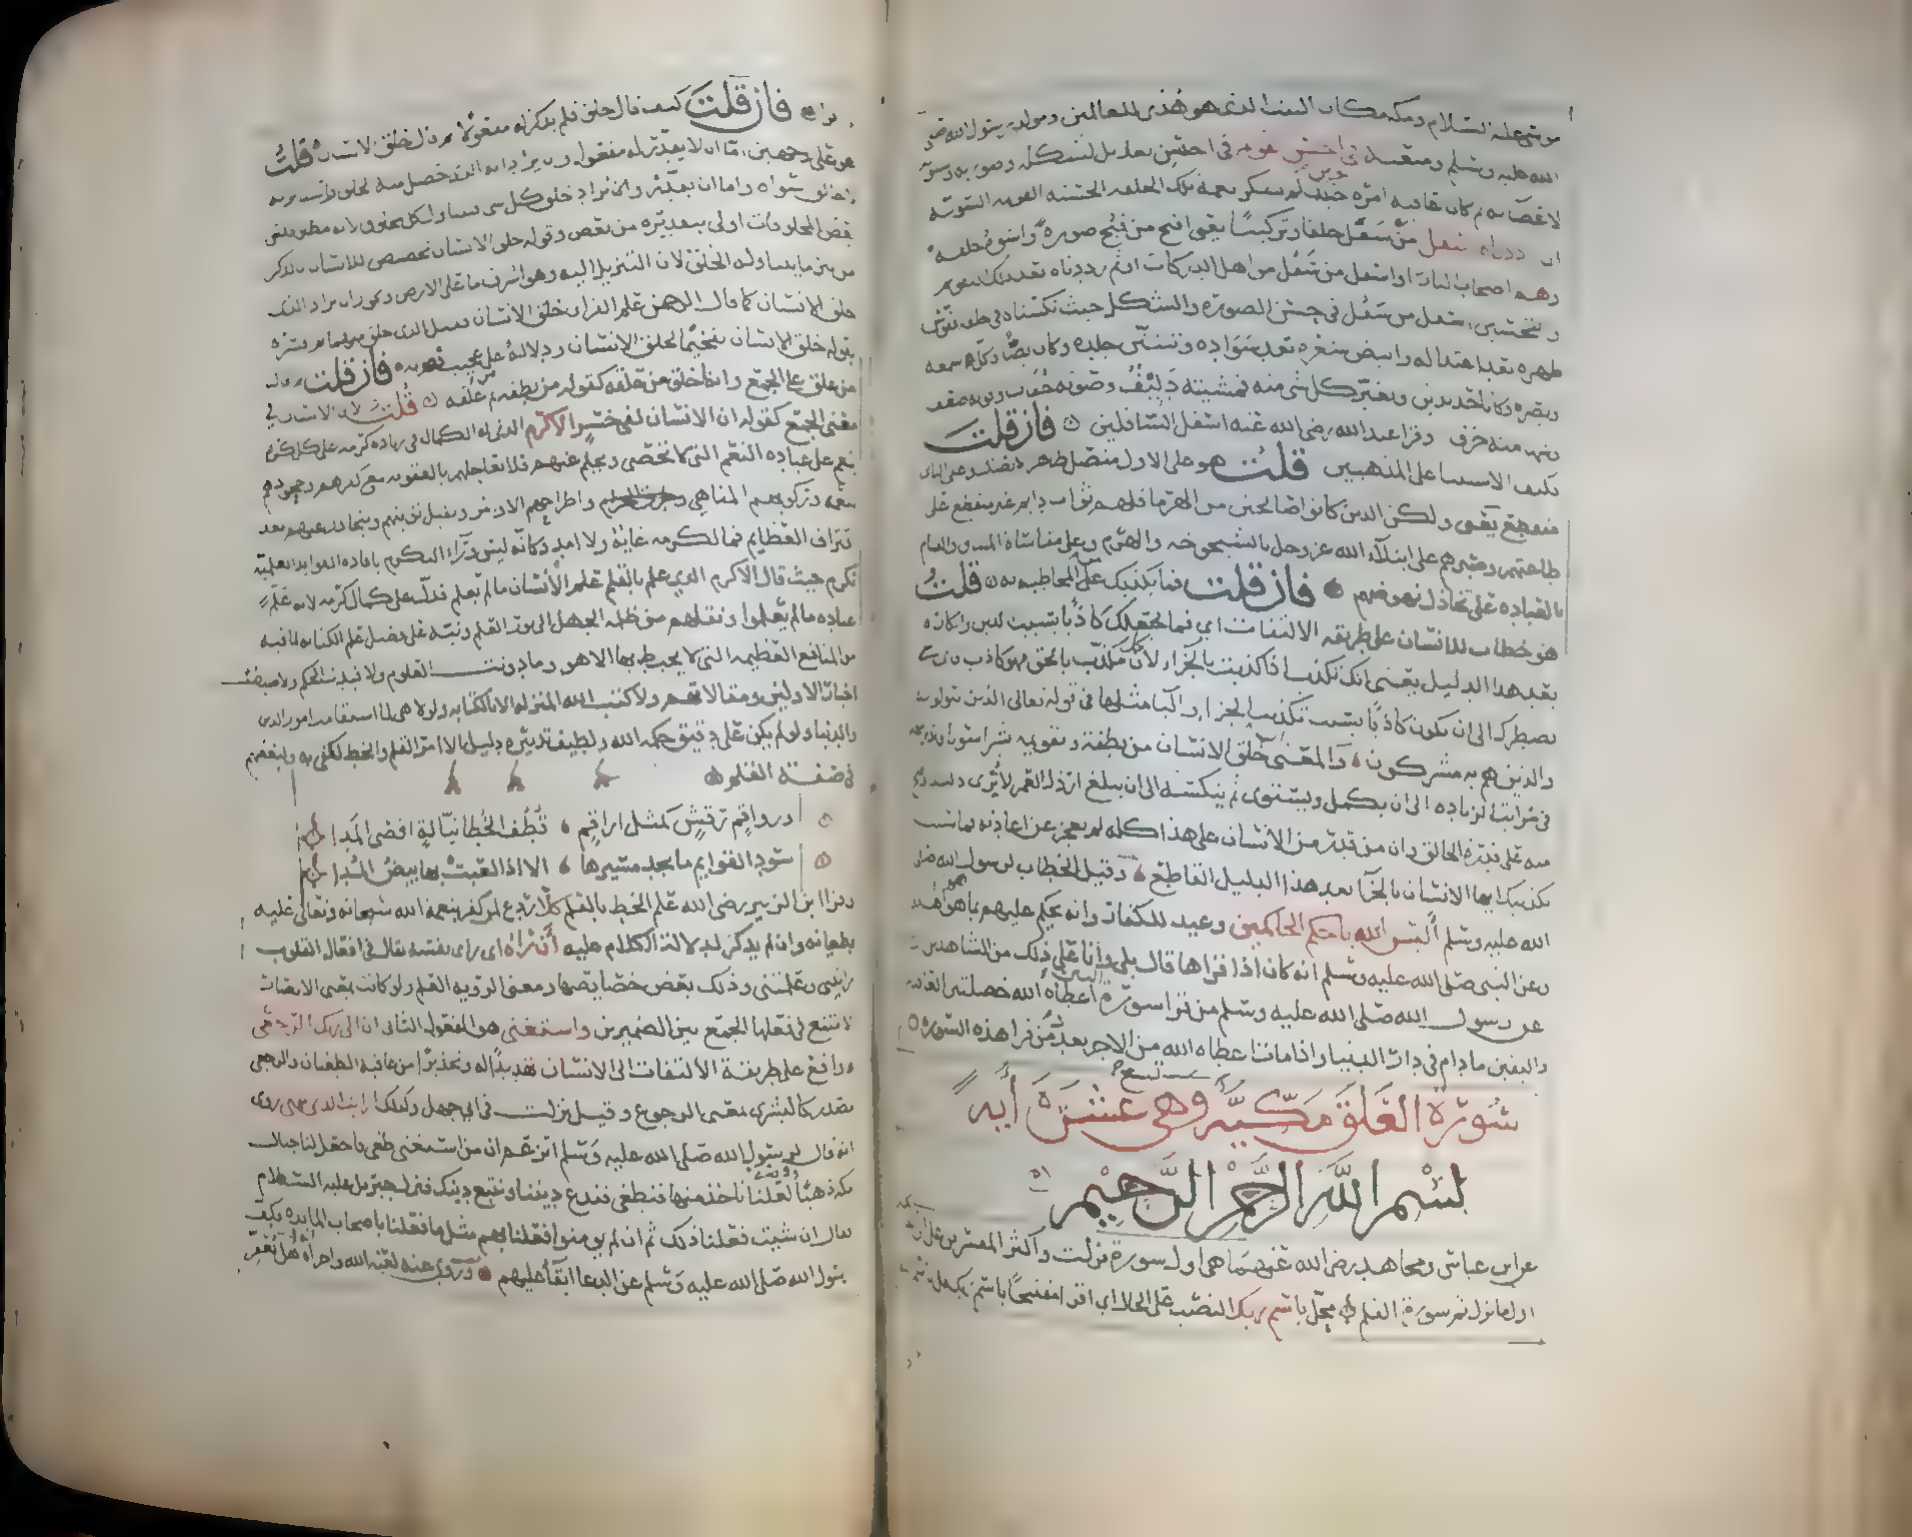 موسى عليه السلام ومكة مكان البيت الذي هو هدى للعالمين ومولد رسول الله صلى
الله عليه وسلم ومبعثه في احسن تقويم في احسن تعديل لشكله وصورته وتسوية
لاعضائه ثم كان عاقبة امره حين لم يشكر نعمة تلك الخلقة الحسنة القويمة السوية
ان رددناه اسفل من سفل خلقا وتركيبا يعني اقبح من قبح صورة واشوهه خلقة
وهم اصحاب النار او اسفل من سفل من اهل الدركات او ثم رددناه بعد ذلك التقويم
والتحسين اسفل من سفل في حسن الصورة والشكل حيث نكسناه في خلقه فقوس
ظهره بعد اعتداله وابيض شعره بعد سواده وتشنن جلده وكان بضا وكل سمعه
وبصره وكانا حديدين وتغير كل شي منه فمشيته دليف وصوته خفات وقوته ضعف
وشهامته خرف وقرا عبد الله رضي الله عنه اسفل السافلين فان قلت
فكيف الاستثنا على المذهبين قلت هو على الاول متصل ظاهر الاتصال وعلى الثاني
منقطع يعني ولكن الذين كانوا صالحين من الهرمى فلهم ثواب دايم غير منقطع على
طاعتهم وصبرهم على ابتلاء الله عز وجل بالشيخوخة والهرم وعلى مقاساة المشاق والقيام
بالعبادة على تخاذل نهوضهم فان قلت فما يكذبك من المخاطب به قلت
هو خطاب للانسان على طريقة الالتفات اي فما يجعلك كاذبا بسبب الدين وانكاره
بعد هذا الدليل يعني انك تكذب اذا كذبت بالجزاء لان كل مكذب بالحق فهو كاذب فاي شي
يضطرك الى ان تكون كاذبا بسبب تكذيب الجزاء والبا مثلها في قوله تعالى الذين يتولونه
والذين هم به مشركون والمعنى خلق الانسان من نطفة وتقويمه بشرا سويا وتدريجه
في مراتب الزيادة الى ان يكمل ويستوي ثم ينكسه الى ان يبلغ ارذل العمر لا ترى دليلا اوضح
منه على قدرة الخالق وان من قدر من الانسان على هذا كله لم يعجز عن اعادته فما سبب
تكذيبك ايها الانسان بالجزآ بعد هذا الدليل القاطع وقيل الخطاب لرسول الله صلى
الله عليه وسلم أليس الله باحكم الحاكمين وعيد للكفار وانه يحكم عليهم بما هم اهله
وعن النبي صلى الله عليه وسلم انه كان اذا قراها قال بلى وأنا على ذلك من الشاهدين
عن رسول الله صلى الله عليه وسلم من قرا سورة التين أعطاه الله خصلتين العافية
واليقين مادام في دار الدنيا واذا مات اعطاه الله من الاجر بعدد من قرا هذه السورة
سورة العلق مكية وهي تسع عشرة أية
بسم الله الرحمن الرحيم
عن ابن عباس ومجاهد رضي الله عنهما هي اول سورة نزلت وأكثر المفسرين على ان
اول ما نزل ثم سورة القلم محل باسم ربك النصب على الحال اي اقرا مفتتحا باسم ربك قل بسم
فان قلت كيف قال خلق فلم يذكر له مفعولا ثم قال خلق الانسان قلت
هو على وجهين اما ان لا يقدر له مفعول وان يراد انه الذي حصل منه الخلق واستاثر به
لا خالق سواه واما ان يقدر ويراد خلق كل شي فيتناول كل مخلوق لانه مطلق فليس
بعض المخلوقات اولى بتقديره من بعض وقوله خلق الانسان تخصيص للانسان بالذكر
من بين ما يتناوله الخلق لان التنزيل اليه وهو اشرف ما على الارض ويجوز ان يراد الذي
خلق الانسان كما قال الرحمن علم القران خلق الانسان فقيل الذي خلق مبهما ثم فسره
بقوله خلق الانسان تفخيما لخلق الانسان ودلالة على عجيب فطرته فان قلت لم قال
من علق على الجمع وانما خلق من علقة كقوله من نطفة ثم من علقة قلت لان الانسان في
معنى الجمع كقوله ان الانسان لفي خسر الاكرم الذي له الكمال في زيادة كرمه على كل كرم
ينعم على عباده النعم التي لا تحصى ويحلم عنهم فلا يعاجلهم بالعقوبة مع كفرهم وجحودهم
لنعمه وركوبهم المناهي واطراحهم الاوامر ويقبل توبتهم ويتجاوز عنهم بعد
اقتراف العظايم فما لكرمه غاية ولا امد وكانه ليس وراء التكرم بافادة الفوايد العلمية
تكرم حيث قال الاكرم الذي علم بالقلم علم الانسان ما لم يعلم فدل على كمال كرمه لانه علم
عباده ما لم يعلموا ونقلهم من ظلمة الجهل الى نور العلم ونبه على فضل علم الكتابة لما فيه
من المنافع العظيمة التي لا يحيط بها الا هو وما دونت العلوم ولا قيدت الحكم ولا ضبطت
اخبار الاولين ومقالاتهم ولا كتب الله المنزلة الا بالكتابة ولولا هي لما استقامت امور الدين
والدنيا ولو لم يكن على دقيق حكمة الله ولطيف تدبيره دليل الا امر القلم والخط لكفى به ولبعضهم
في صفة القلم
ورواقم رقش كمثل اراقم قطف الخطا نيالة اقصى المدا
سود القوايم ما يجد مسيرها الا اذا لعبت بها بيض المدا
وقرا ابن الزبير رضي الله عنه علم الخط بالقلم كلا ردع لمن كفر بنعمة الله سبحانه وتعالى عليه
بطغيانه وان لم يذكر لدلالة الكلام عليه أن رآه اي راى نفسه يقال في افعال القلوب
رايتني وعلمتني وذلك بعض خصايصها ومعنى الرؤية العلم ولو كانت بمعنى الابصار
لامتنع في فعلها الجمع بين الضميرين واستغنى هو المفعول الثاني ان الى ربك الرجعى
واقع على طريقة الالتفات الى الانسان تهديدا له وتحذيرا من عاقبة الطغيان والرجعى
مصدر كالبشرى بمعنى الرجوع وقيل نزلت في ابي جهل وكذلك ارايت الذي ينهى روي
انه قال لرسول الله صلى الله عليه وسلم اتزعم ان من استغنى طغى فاجعل لنا جبال
مكة ذهبا وفضة لعلنا ناخذ منها فنطغى فندع ديننا ونتبع دينك فنزل جبريل عليه السلام
فقال ان شيت فعلنا ذلك ثم ان لم يومنوا فعلنا بهم مثل ما فعلنا باصحاب المايدة فكف
رسول الله صلى الله عليه وسلم عن الدعا ابقآ عليهم وروي عنه لعنه الله وأخزاه انه قال هل يعفر